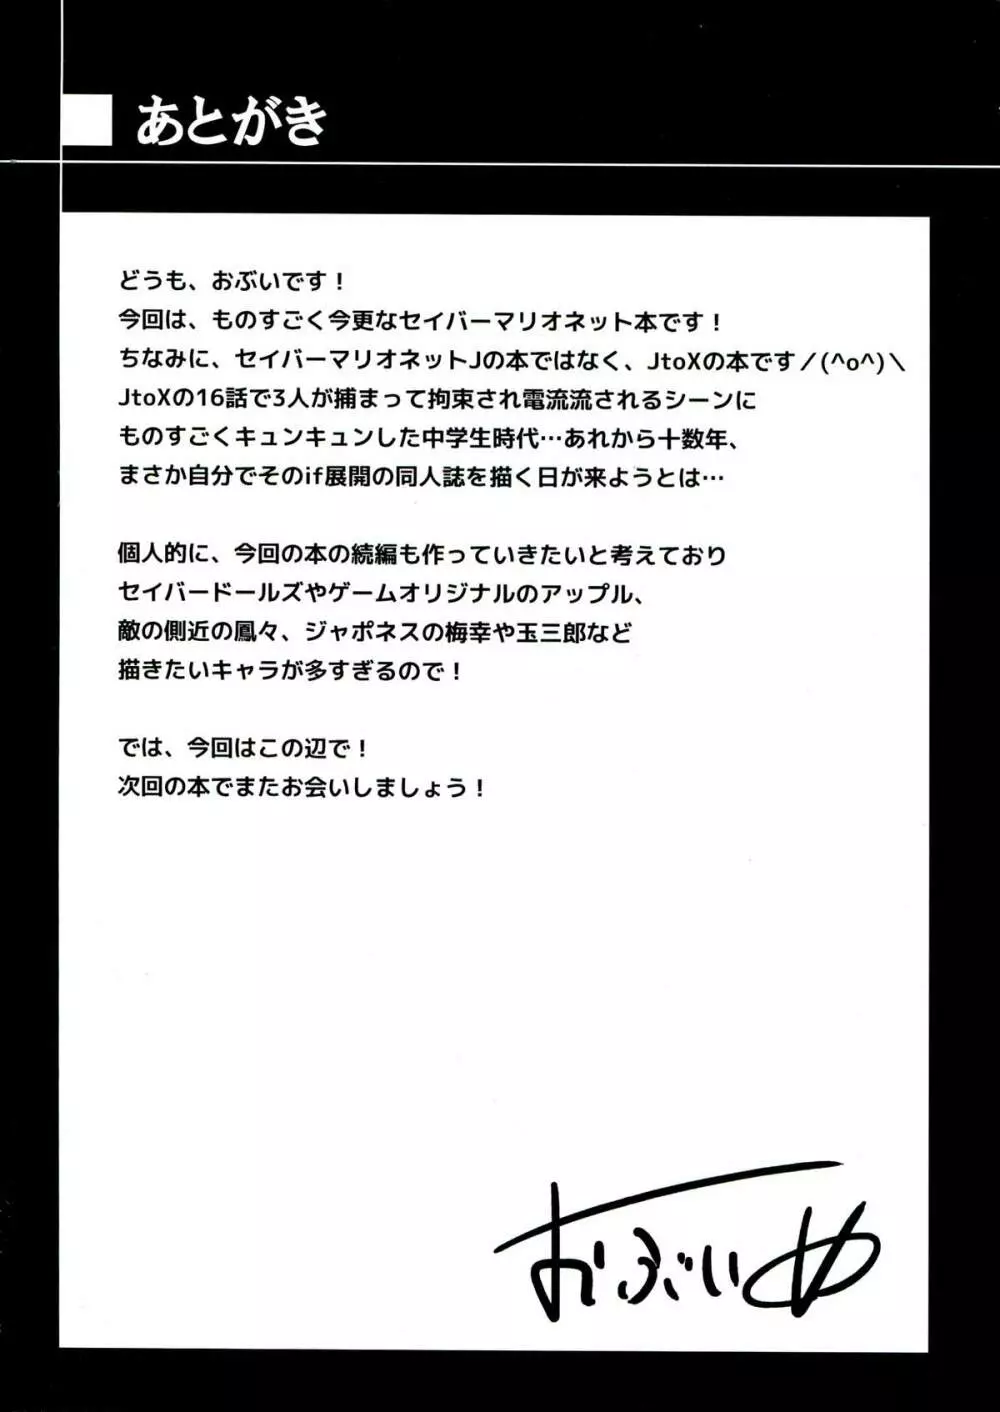 あとがき
どうも、おぶいです！
今回は、ものすごく今更なセイバーマリオネット本です！
ちなみに、セイバーマリオネットJの本ではなく、JtoXの本です／(^o^)＼
JtoXの16話で3人が捕まって拘束され電流流されるシーンに
ものすごくキュンキュンした中学生時代…あれから十数年、
まさか自分でそのif展開の同人誌を描く日が来ようとは…
個人的に、今回の本の続編も作っていきたいと考えており
セイバードールズやゲームオリジナルのアップル、
敵の側近の鳳々、ジャポネスの梅幸や玉三郎など
描きたいキャラが多すぎるので！
では、今回はこの辺で！
次回の本でまたお会いしましょう！
おぶい